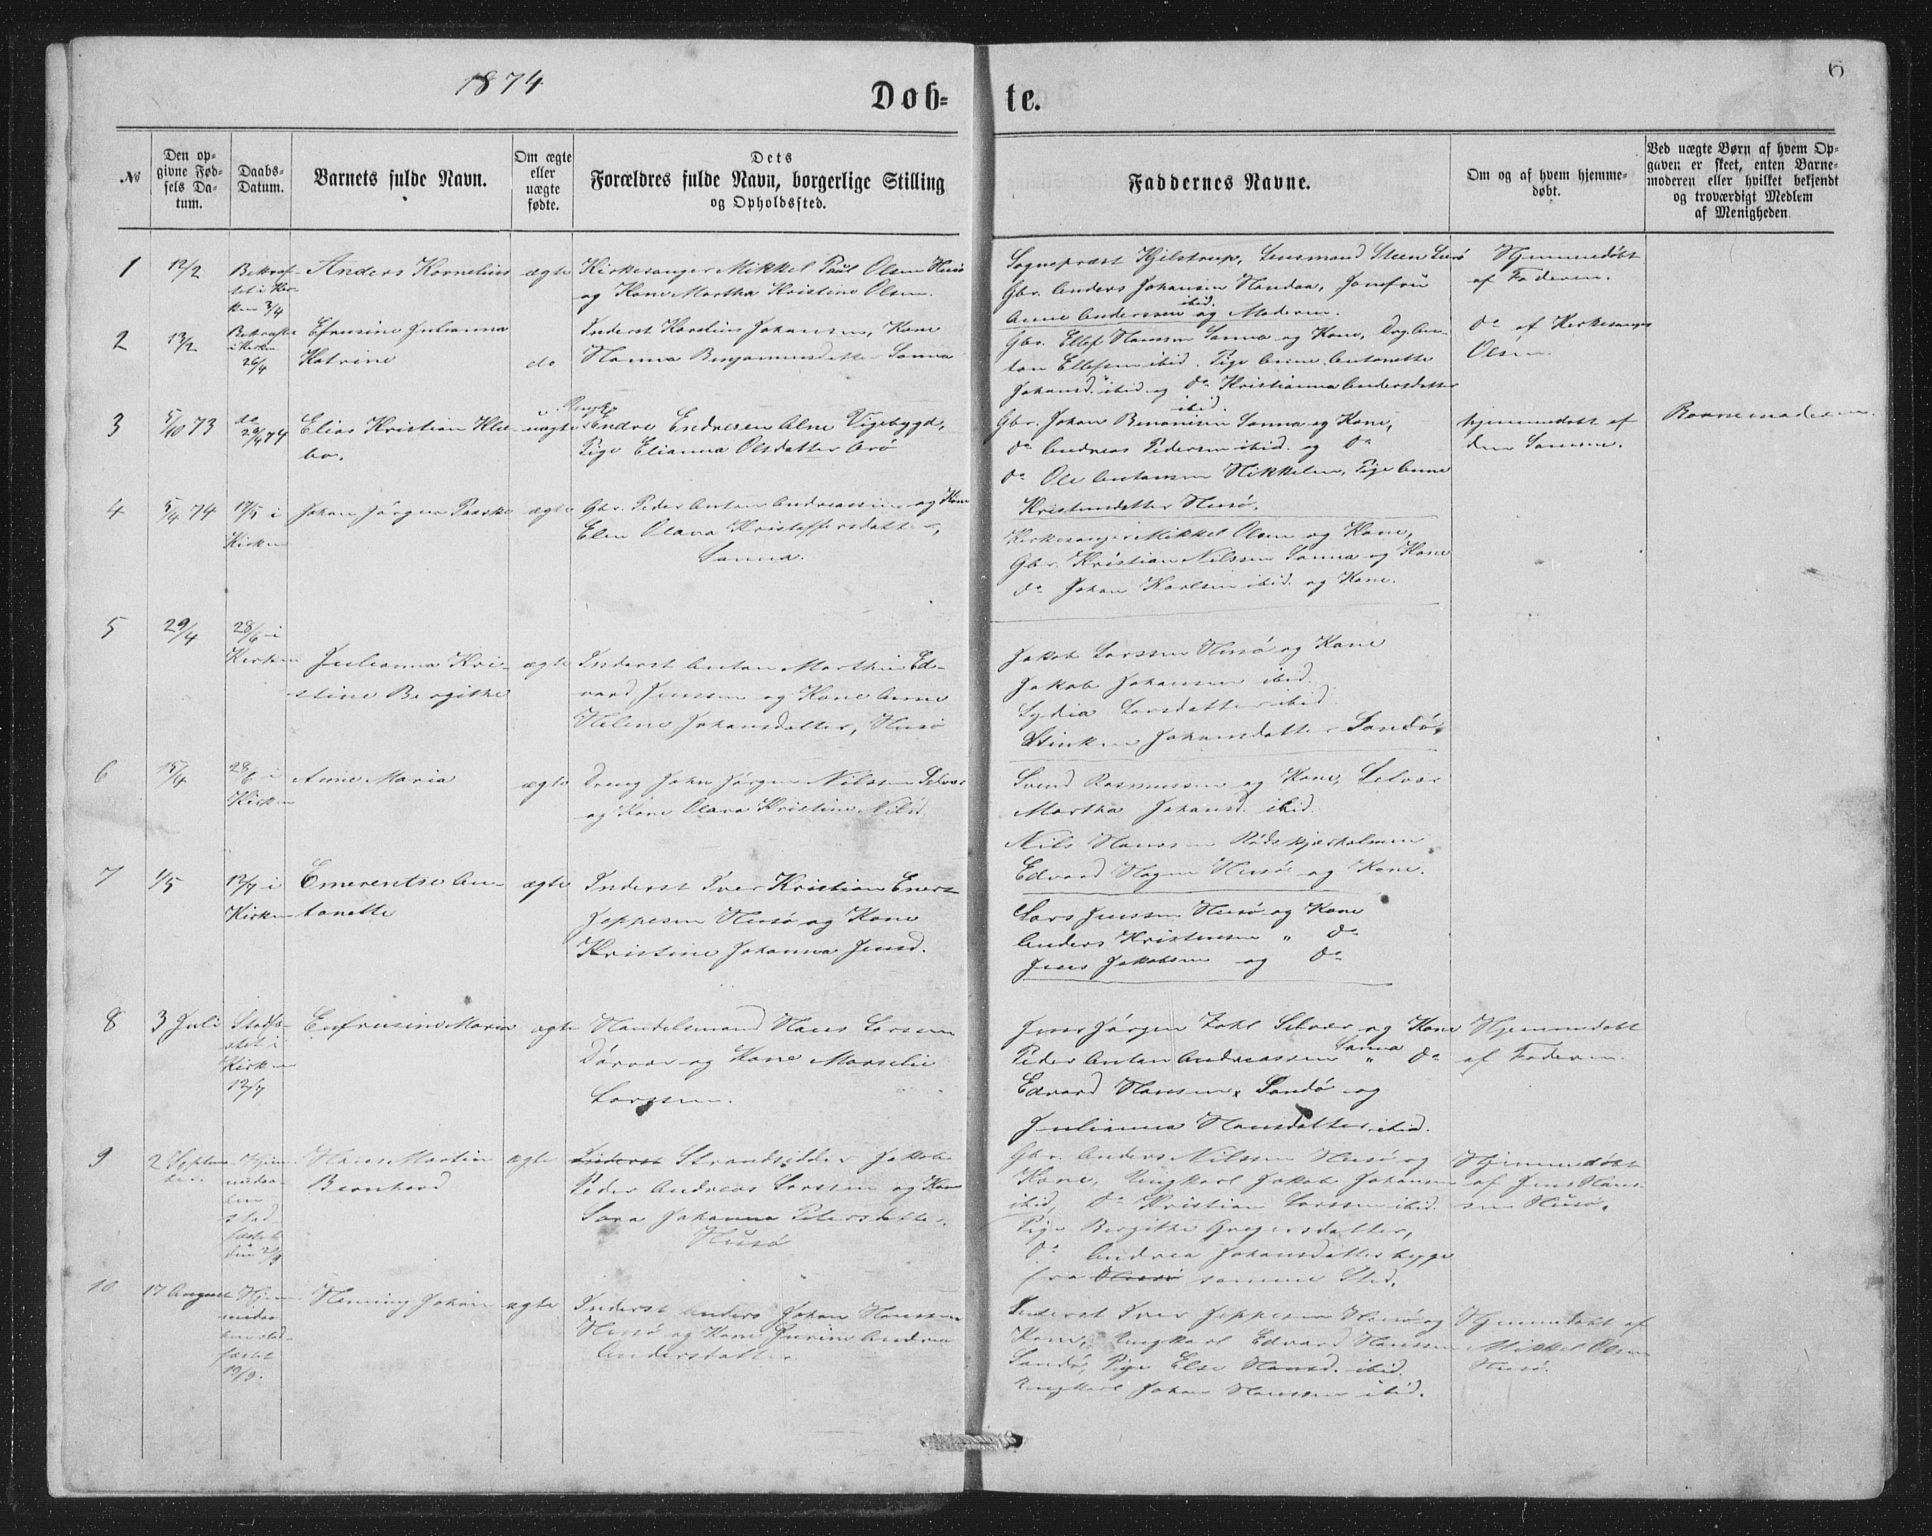 1874
6
Døb-
te.
№
Den op-
givne Fød-
sels Da-
tum.
Daabs-
Datum.
Barnets fulde Navn.
Om ægte
eller
uægte
fødte.
Dets
Forældres fulde Navn, borgerlige Stilling
og Opholdssted.
Faddernes Navne.
Om og af hvem hjemme-
døbt.
Ved uægte Børn af hvem Op-
gaven er skeet, enten Barne-
moderen eller hvilket bekjendt
og troværdigt Medlem
af Menigheden.
1
12/2
Bekræf-
tet i Kir-
ken 3/4
Anders Kornelius
ægte
Kirkesanger Mikkel Paul Olsen Husø
og Kone Martha Kristine Olsen.
Sogneprest Kjelstrup, Lensmand Steen
Gbr. Anders Johansen Jomfru
Anne Anderssen ibid. og Moderen.
Hjemmedøbt
af Faderen.
2
13/2
Bekræftet
i Kirken
26/4
Efrusine Julianna
Katrine
do
Inderst Kornelius Johansen, Kone
Hanna Benjaminsdatter Sanna
Gbr. Ellef Hansen Sanna og Kone, Dreng An-
ton Ellefsen ibid. Pige Anne Antonette
Johansd. ibid. og do Kristianna Andersdatter
ibid.
do af Kirkesanger
Olsen.
3
5/10 73
do
26/4 74
Elias Kristian Kle-
bo.
uægte
Ungk.
Endre Endresen Alne Vigebygd,
Pige Elianna Olsdatter
Gbr. Johan Benonisen Sanna og Kone,
do Andreas Pedersen ibid. og do
do Ole Antonsen Mikkelsen, Pige Anne
Kristensdatter Husø.
hjemmedøbt af
den Samme.
Barnemoderen
4
5/4 74
17/5 i
Kirken
Johan Jørgen Paaske
ægte
Gbr. Peder Antan Andreassen og Kone
Elen Olava Kristoffersdatter,
Sanna.
Kirkesanger Mikkel Olsen og Kone,
Gbr. Kristian Nilssen Sanna og Kone
do Johan Karlsen ibid. og Kone.
5
29/4
28/6 i
Kirken
Julianna Kri-
stine Bergithe
ægte
Inderst Antan Marthin Ed-
vard Jenssen og Kone Anne
Helene Johansdatter, Husø
Jakob Larssen Husø og Kone
Jakob Johansen ibid.
Lydia Larsdatter ibid.
Stinken Johansdatter Sandø.
6
15/4
28/6 i
Kirken
Anne Maria
ægte
Dreng John Jørgen Nilssen Selvær
og Kone Olava Kristine Nilsd.
Svend Rasmussen og Kone, Selvær
Martha Johansd. ibid.
Nils Hanssen Rødskjærholmen
Edvard Hagen Husø og Kone.
7
1/5
12/7 i
Kirken
Emerentse An-
tonette
ægte
Inderst Iver Kristian Enert
Jeppesen Husø og Kone
Kristine Johanna Jensd.
Lars Jenssen Husø og Kone
Anders Kristensen " do
Jens Jakobsen og do
8
3 Juli
Stadfæ-
stet i
Kirken
12/7
Eufrusine Maria
ægte
Handelsmand Hans Larsen
Dørvær og Kone Marselie
Larssen.
Jens Jørgen Zahl Selvær og Kone
Peder Antan Andreassen Sanna " do
Edvard Hansen, Sandø og
Julianna Hansdatter ibid.
Hjemmedøbt
af Faderen.
9
2 Septem-
ber
Hjem-
medøb-
ben
stad-
fæstet
den 2/9
Hans Martin
Bernhard
ægte
Inderst Strandsidder Jakob
Peder Andreas Larssen og Kone
Sara Johanna Petersdatter.
Husø
Gbr. Anders Nilssen Husø og
Kone, Ungkarl Jakob Johansen
ibid, do Kristian Larssen ibid.
Pige Bergithe Gregersdatter,
do Andrea Johansdatter begge
fra Husø samme Sted.
Hjemmedøbt
af Jens Hans-
sen Husø.
10
17 August
Hjem-
medøb-
ben stad-
fæstet
19/9.
Henning Johan
ægte
Inderst Anders Johan Hanssen
Husø og Kone Jurine Andrea
Andersdatter
Inderst Iver Jeppesen Husø og
Kone, Ungkarl Edvard Hanssen
Sandø, Pige Else Hansd. ibid.
Ungkarl Johan Hanssen ibid.
Hjemmedøbt af
Mikkel Olsen
Husø.